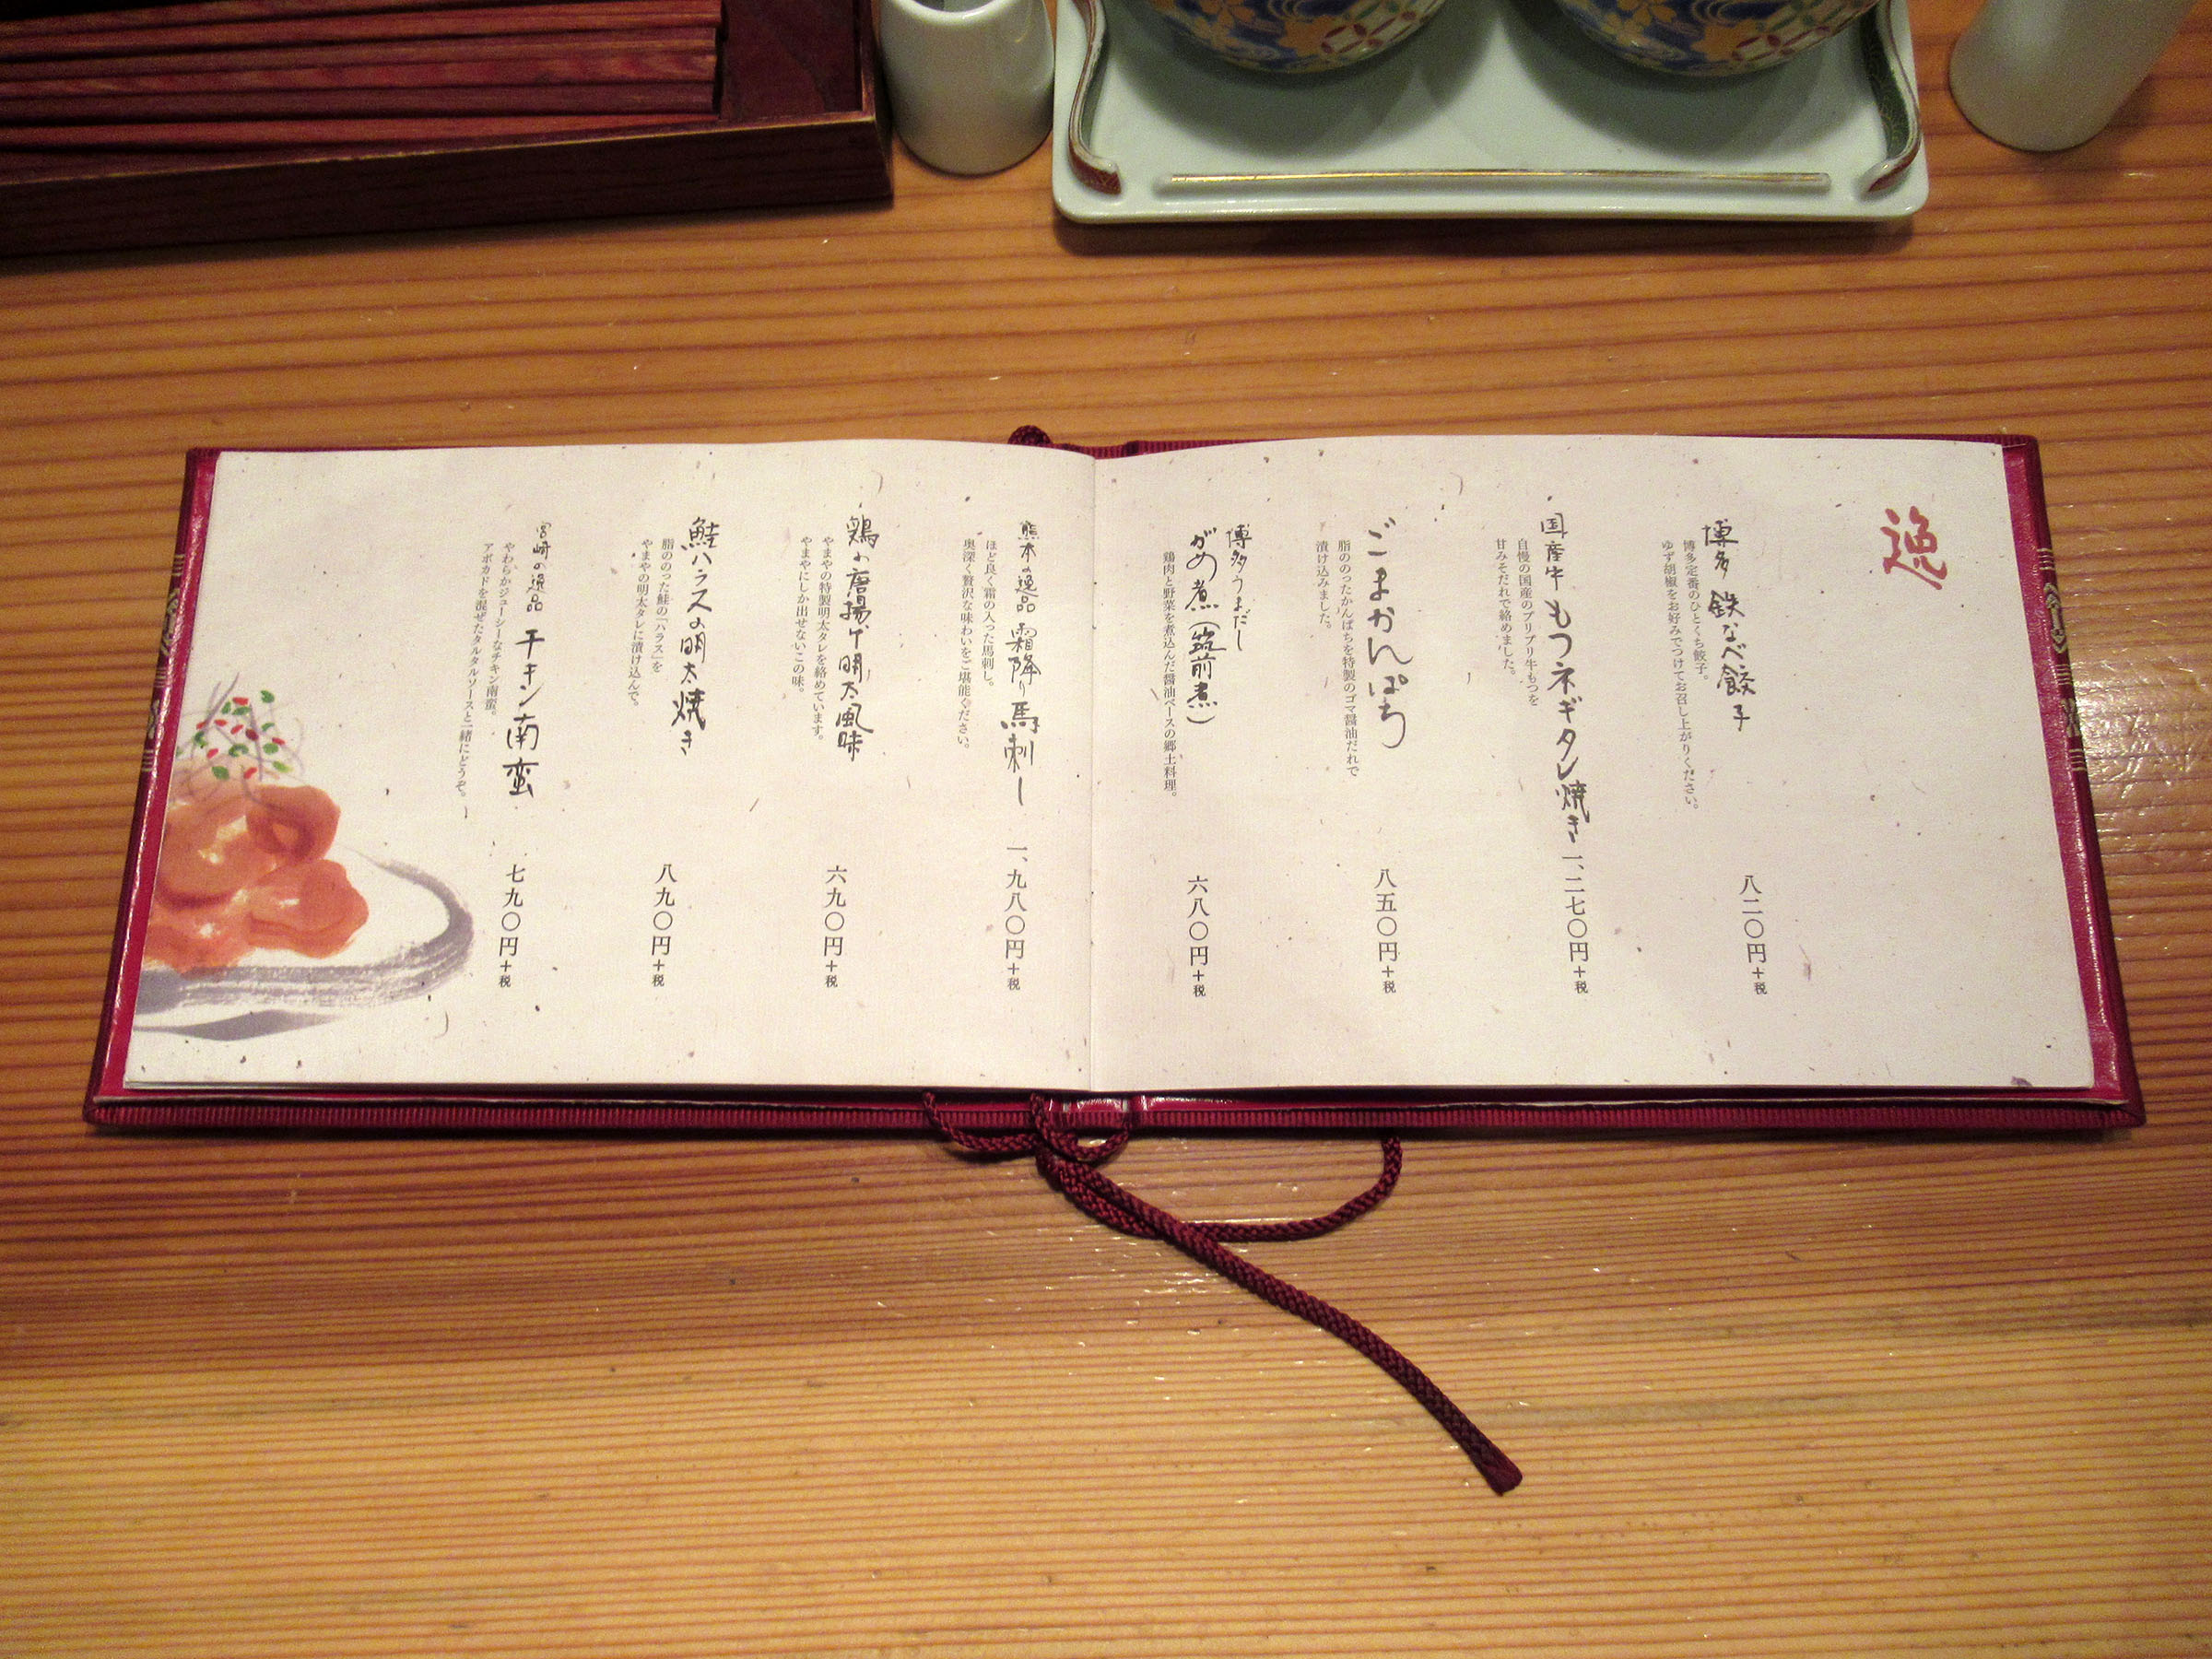 逸
博多 鉄なべ餃子
博多定番のひとくち餃子。
ゆず胡椒をお好みでつけてお召し上がりください。
八二〇円+税
国産牛もつネギタレ焼き
自慢の国産のプリプリ牛もつを
甘みそだれで絡めました。
一、二七〇円+税
ごまかんぱち
脂ののったかんぱちを特製のゴマ醤油だれで
漬け込みました。
八五〇円+税
博多うまだし
がめ煮(筑前煮)
鶏肉と野菜を煮込んだ醤油ベースの郷土料理。
六八〇円+税
熊本の逸品 霜降り馬刺し
ほど良く霜の入った馬刺し。
奥深く贅沢な味わいをご堪能ください。
一、九八〇円+税
鶏の唐揚げ明太風味
やまやの特製明太タレを絡めています。
やまやにしか出せないこの味。
六九〇円+税
鮭ハラスの明太焼き
脂ののった鮭の「ハラス」を
やまやの明太タレに漬け込んで。
八九〇円+税
宮崎の逸品 チキン南蛮
やわらかジューシーなチキン南蛮。
アボカドを混ぜたタルタルソースと一緒にどうぞ。
七九〇円+税